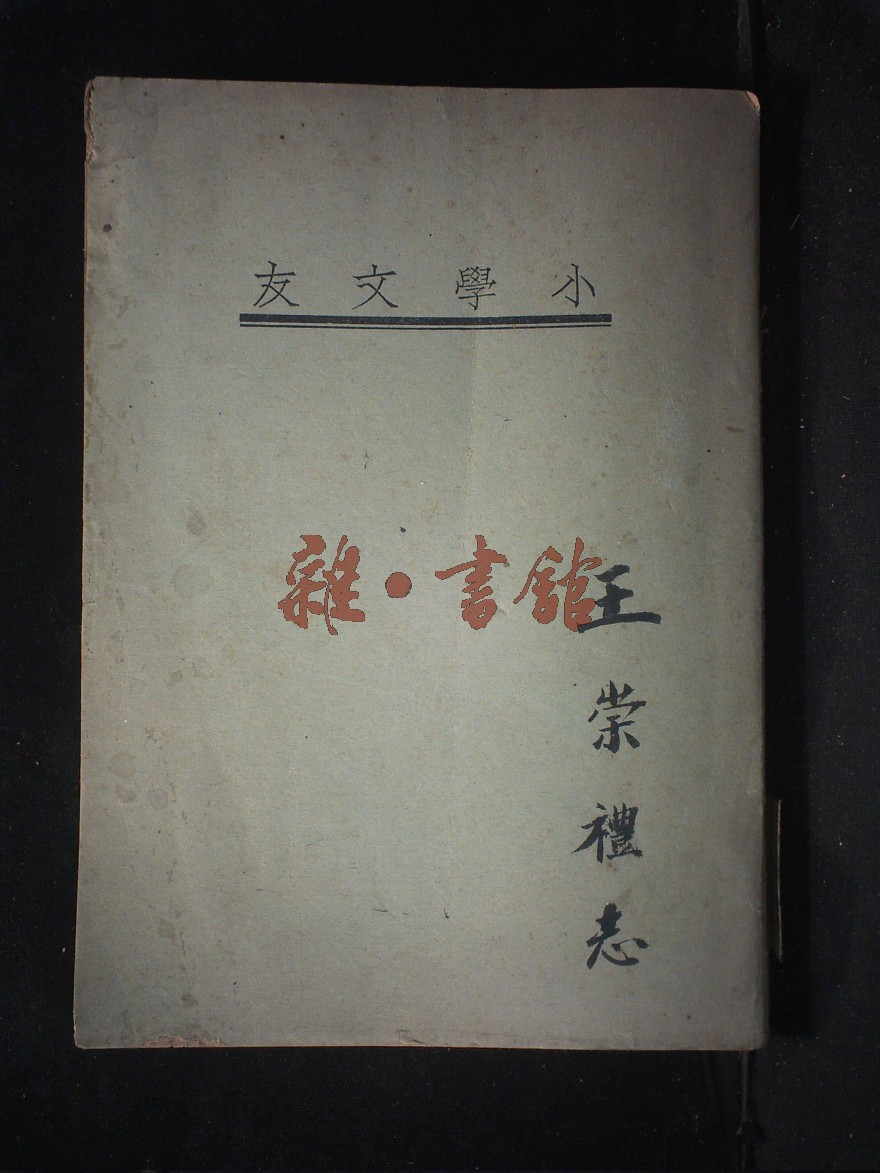 小學文友
雜·書館
王荣禮志